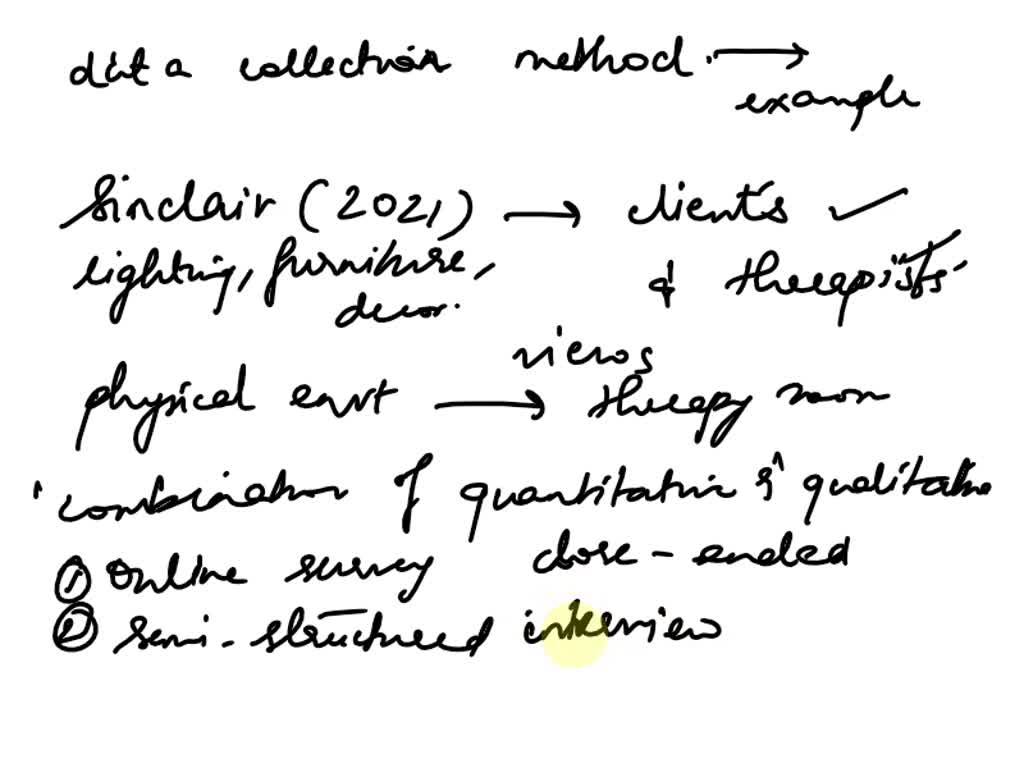 data collection method. →
example
Sinclair (2021) → clients ✓
lighting, furniture, & therapists
decor.
views
physical envt → therapy room
combination of quantitative & qualitative
① Online survey close-ended
② semi-structured interview